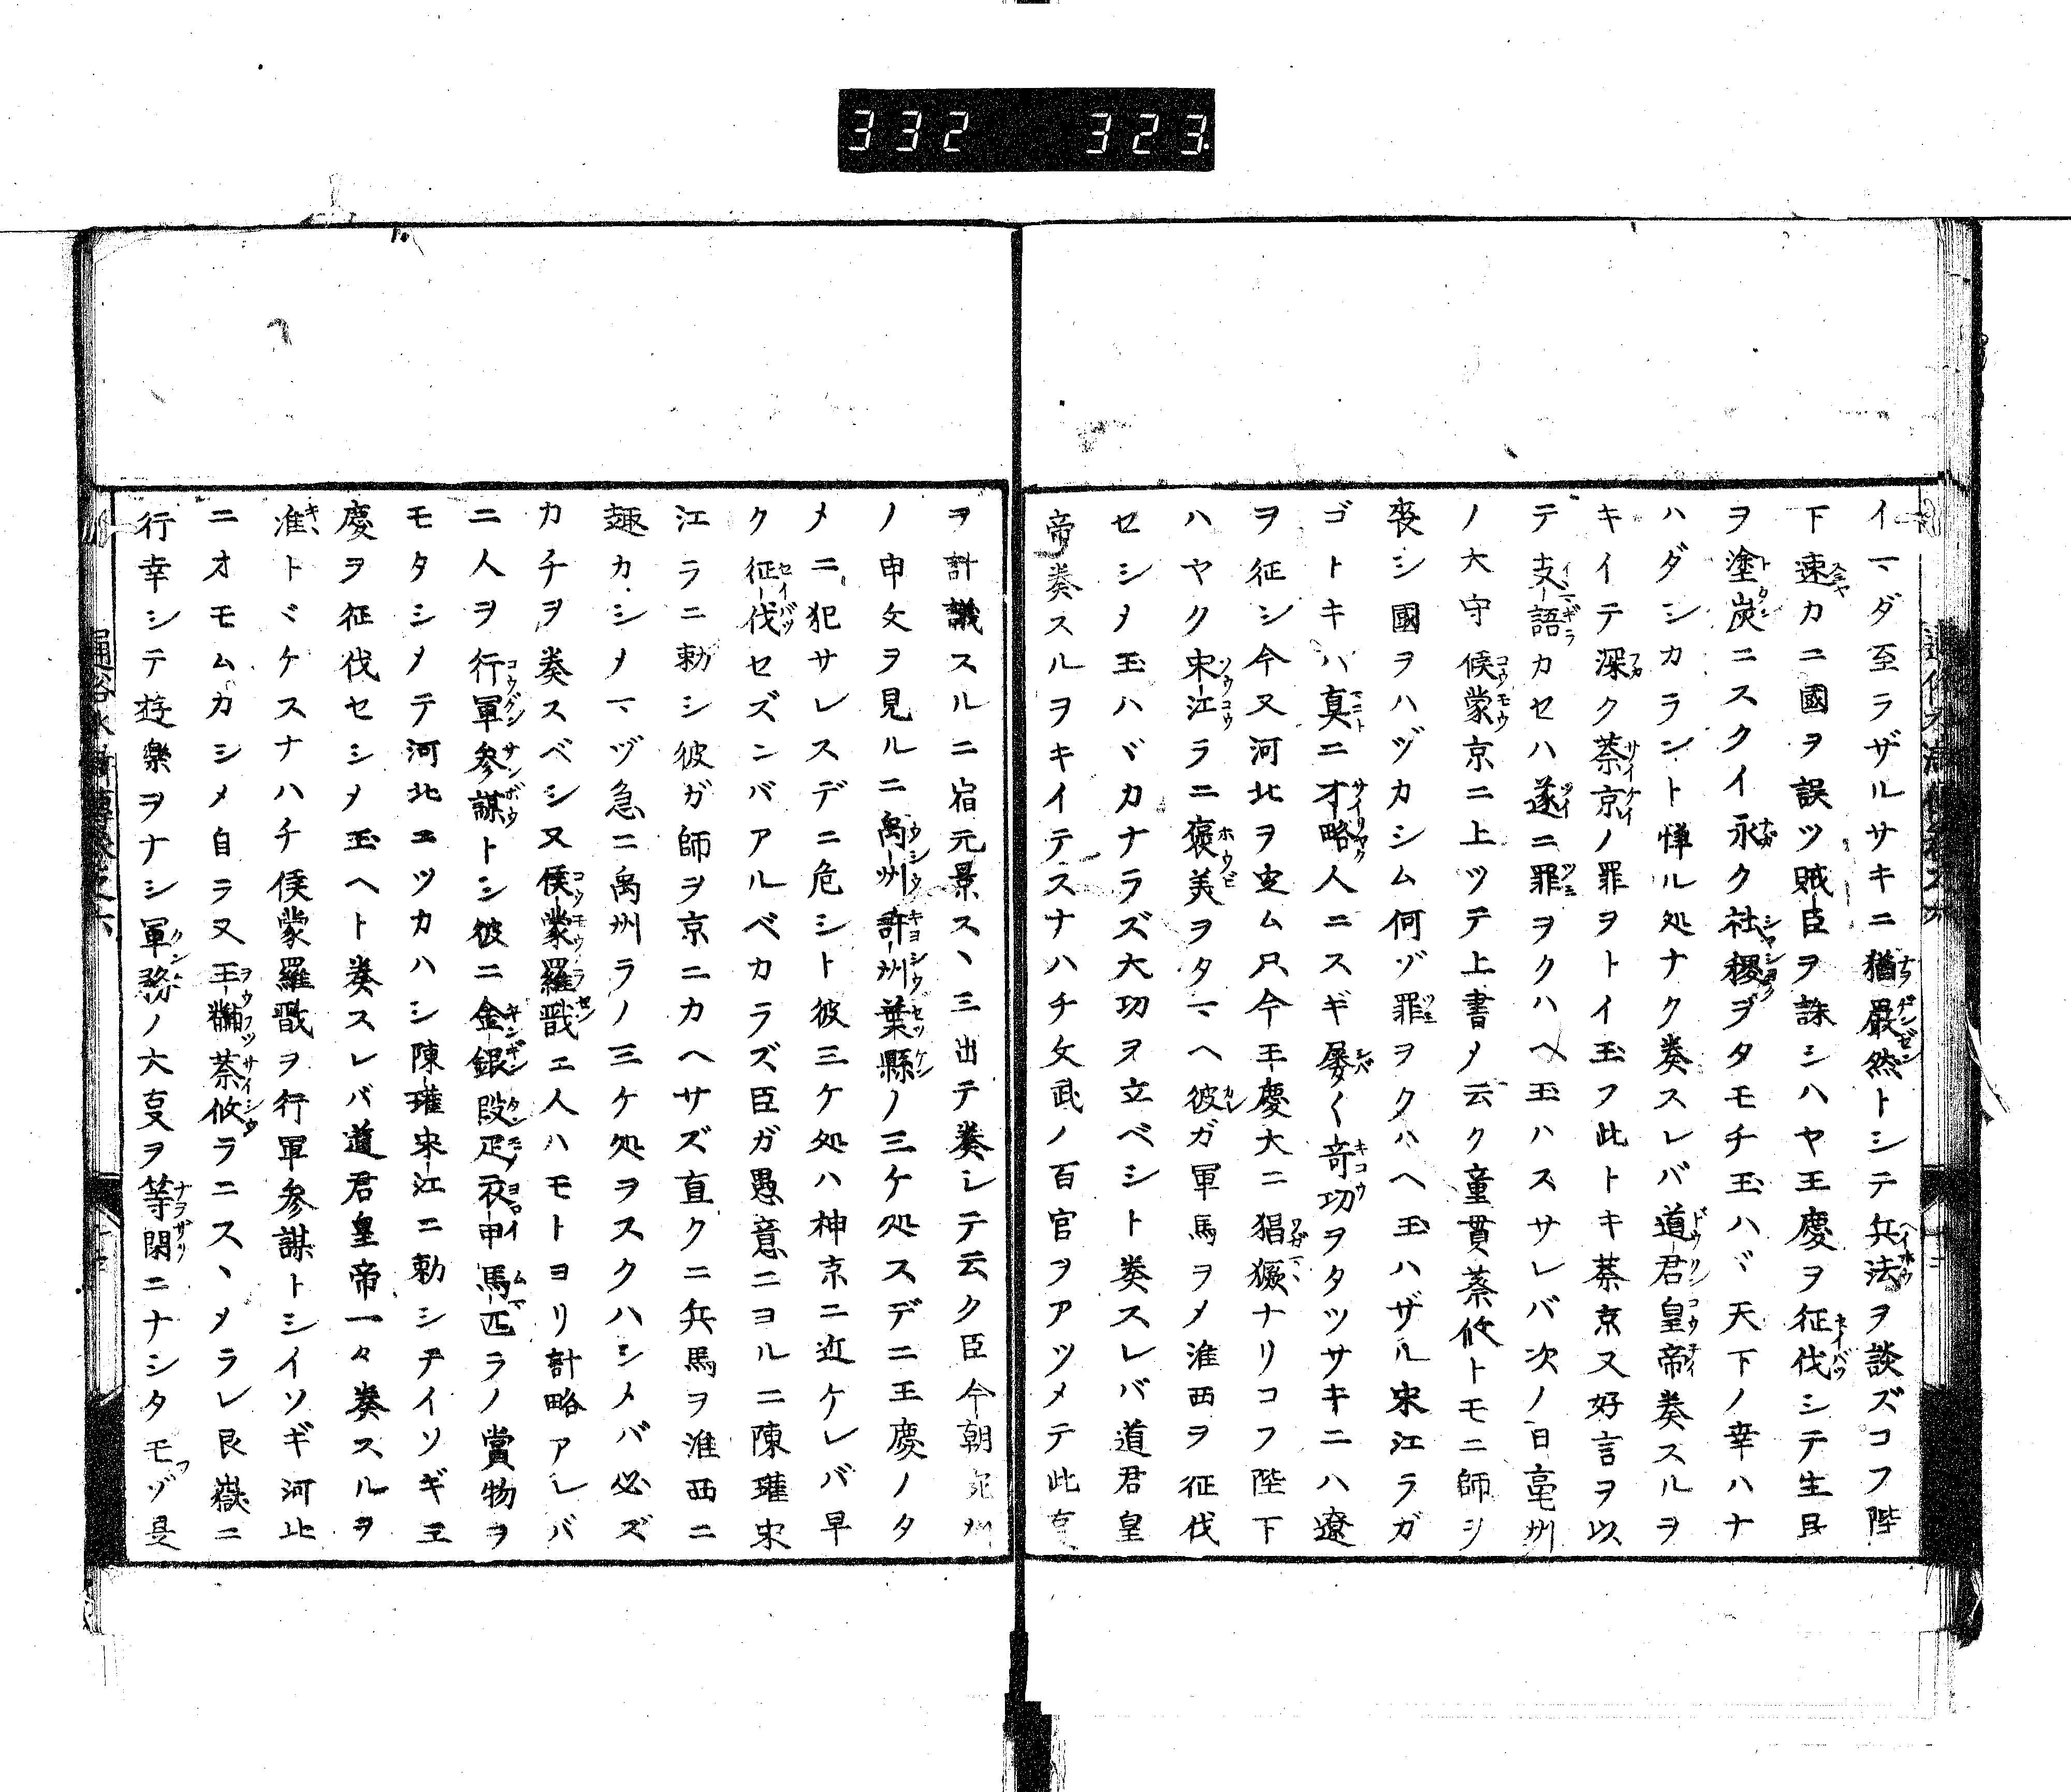 332 323
イマダ至ラザルサキニ猶嚴然トシテ兵法ヲ談ズコフ陛
下速カニ國ヲ誤ツ賊臣ヲ誅シハヤ王慶ヲ征伐シテ生民
ヲ塗炭ニスクイ永ク社稷ヲタモチ玉ハヾ天下ノ幸ハナ
ハダシカラント憚ル処ナク奏スレバ道君皇帝奏スルヲ
キイテ深ク蔡京ノ罪ヲトイ玉フ此トキ蔡京又好言ヲ以
テ支語カセハ遂ニ罪ヲクハヘ玉ハスサレバ次ノ日亳州
ノ大守侯蒙京ニ上ツテ上書ノ云ク童貫蔡攸トモニ師シ
喪シ國ヲハヅカシム何ゾ罪ヲクハヘ玉ハザル宋江ラガ
ゴトキハ真ニ才略人ニスギ屡く奇功ヲタツサキニハ遼
ヲ征シ今又河北ヲ定ム只今王慶大ニ猖獗ナリコフ陛下
ハヤク宋江ラニ褒美ヲタマヘ彼ガ軍馬ヲメ淮西ヲ征伐
セシメ玉ハヾカナラズ大功ヲ立ベシト奏スレバ道君皇
帝奏スルヲキイテスナハチ文武ノ百官ヲアツメテ此亨
ヲ計議スルニ宿元景スヽミ出テ奏シテ云ク臣今朝宛州
ノ申文ヲ見ルニ禹州許州葉縣ノ三ケ処スデニ王慶ノタ
メニ犯サレスデニ危シト彼三ケ処ハ神京ニ近ケレバ早
ク征伐セズンバアルベカラズ臣ガ愚意ニヨルニ陳瓘宋
江ラニ勅シ彼ガ師ヲ京ニカヘサズ直クニ兵馬ヲ淮西ニ
趣カシメマヅ急ニ禹州ラノ三ケ処ヲスクハシメバ必ズ
カチヲ奏スベシ又侯蒙羅戩二人ハモトヨリ計略アレバ
二人ヲ行軍参謀トシ彼ニ金銀段疋衣甲馬匹ラノ賞物ヲ
モタシメテ河北ニツカハシ陳瓘宋江ニ勅シテイソギ王
慶ヲ征伐セシメ玉ヘト奏スレバ道君皇帝一々奏スルヲ
准トヾケスナハチ侯蒙羅戩ヲ行軍参謀トシイソギ河北
ニオモムカシメ自ラ又王黼蔡攸ラニスヽメラレ艮嶽ニ
行幸シテ遊樂ヲナシ軍務ノ大亨ヲ等閑ニナシタモゾ是
通俗水滸傳卷之六